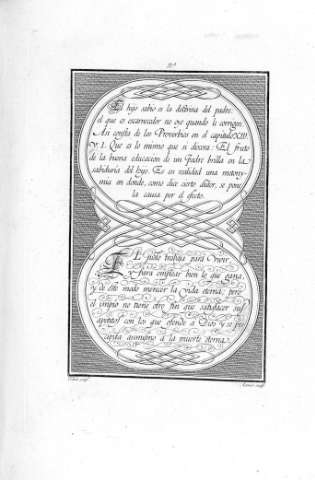 El hijo sabio es la doctrina del padre:
el que es escarnecedor no oye quando le corrigen.
Asi consta de los Proverbios en el capitulo XIII.
v. 1. Que es lo mismo que si dixera: El fruto
de la buena educacion de un Padre brilla en la
sabiduria del hijo. Es en realidad una metony-
mia en donde, como dice cierto Autor, se pone
la causa por el efecto.
EL justo trabaja para vivir,
y para emplear bien lo que gana,
y de este modo merecer la vida eterna; pero
el impio no tiene otro fin que satisfacer sus
apetitos con los que ofende á Dios y se pre-
cipita asimismo á la muerte eterna.